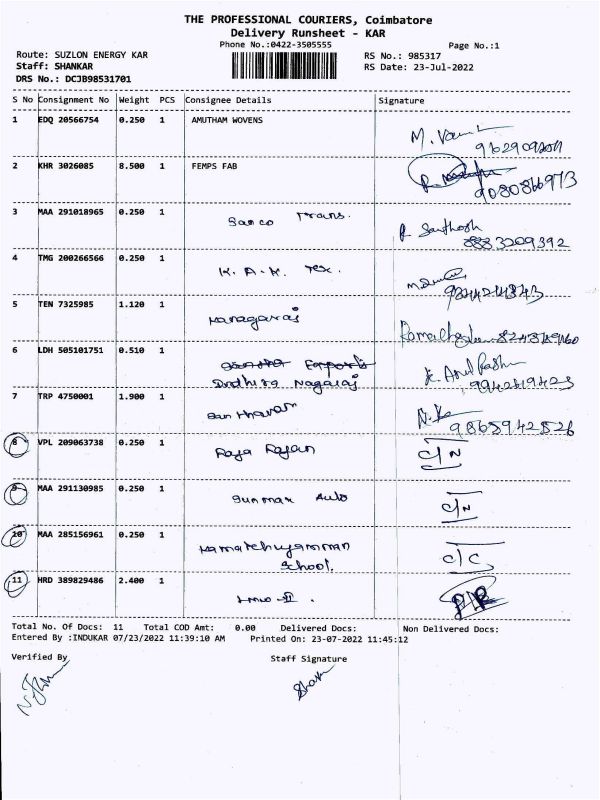 THE PROFESSIONAL COURIERS, Coimbatore
Delivery Runsheet - KAR
Phone No.:0422-3505555 Page No.:1
Route: SUZLON ENERGY KAR RS No.: 985317
Staff: SHANKAR RS Date: 23-Jul-2022
DRS No.: DCJB98531701
S No Consignment No Weight PCS Consignee Details Signature
1 EDQ 20566754 0.250 1 AMUTHAM WOVENS
2 KHR 3026085 8.500 1 FEMPS FAB
3 MAA 291018965 0.250 1 Sanco Trans. R Santhosh
8883209392
4 TMG 200266566 0.250 1 K. A. K. Tex.
5 TEN 7325985 1.120 1 Kanagaraj
6 LDH 505101751 0.510 1
Sindhira Nagaraj 9942819423
7 TRP 4750001 1.900 1 N.K
9865942526
8 VPL 209063738 0.250 1 Raja Rajan C/N
9 MAA 291130985 0.250 1 Sunmax Auto C/N
10 MAA 285156961 0.250 1 Kamatchiyamman C/C
School.
11 HRD 389829486 2.400 1
Total No. Of Docs: 11 Total COD Amt: 0.00 Delivered Docs: Non Delivered Docs:
Entered By :INDUKAR 07/23/2022 11:39:10 AM Printed On: 23-07-2022 11:45:12
Verified By Staff Signature